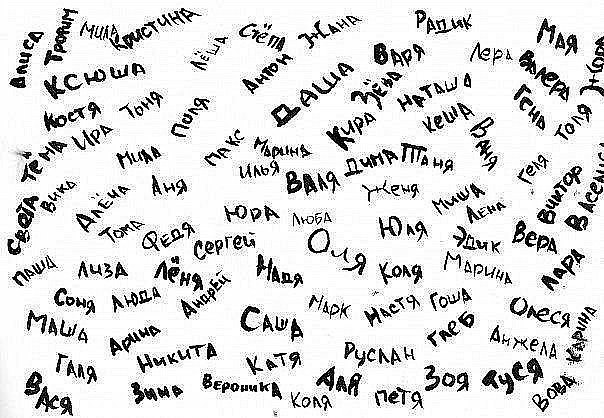 Алиса
Трофим
Мила
Кристина
Лёша
Стёпа
Жанна
Радик
Варя
Лера
Мая
Валера
Жора
Ксюша
Антон
Даша
Зёва
Наташа
Гена
Толя
Костя
Тоня
Поля
Кира
Кеша
Ваня
Тёма
Ира
Мила
Макс
Марина
Илья
Дима
Таня
Геля
Виктор
Василиса
Света
Вика
Алёна
Аня
Валя
Женя
Миша
Лена
Тома
Федя
Юра
Люба
Юля
Эдик
Вера
Сергей
Оля
Паша
Лиза
Лёня
Надя
Коля
Марина
Лара
Соня
Люда
Андрей
Марк
Настя
Гоша
Олеся
Маша
Арина
Саша
Глеб
Анжела
Карина
Галя
Никита
Катя
Руслан
Вася
Зина
Вероника
Коля
Аля
Петя
Зоя
Дуся
Вова